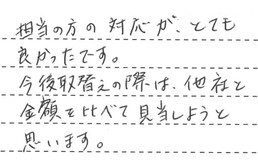 担当の方の対応が、とても
良かったです。
今後取替えの際は、他社と
金額を比べて見当しようと
思います。